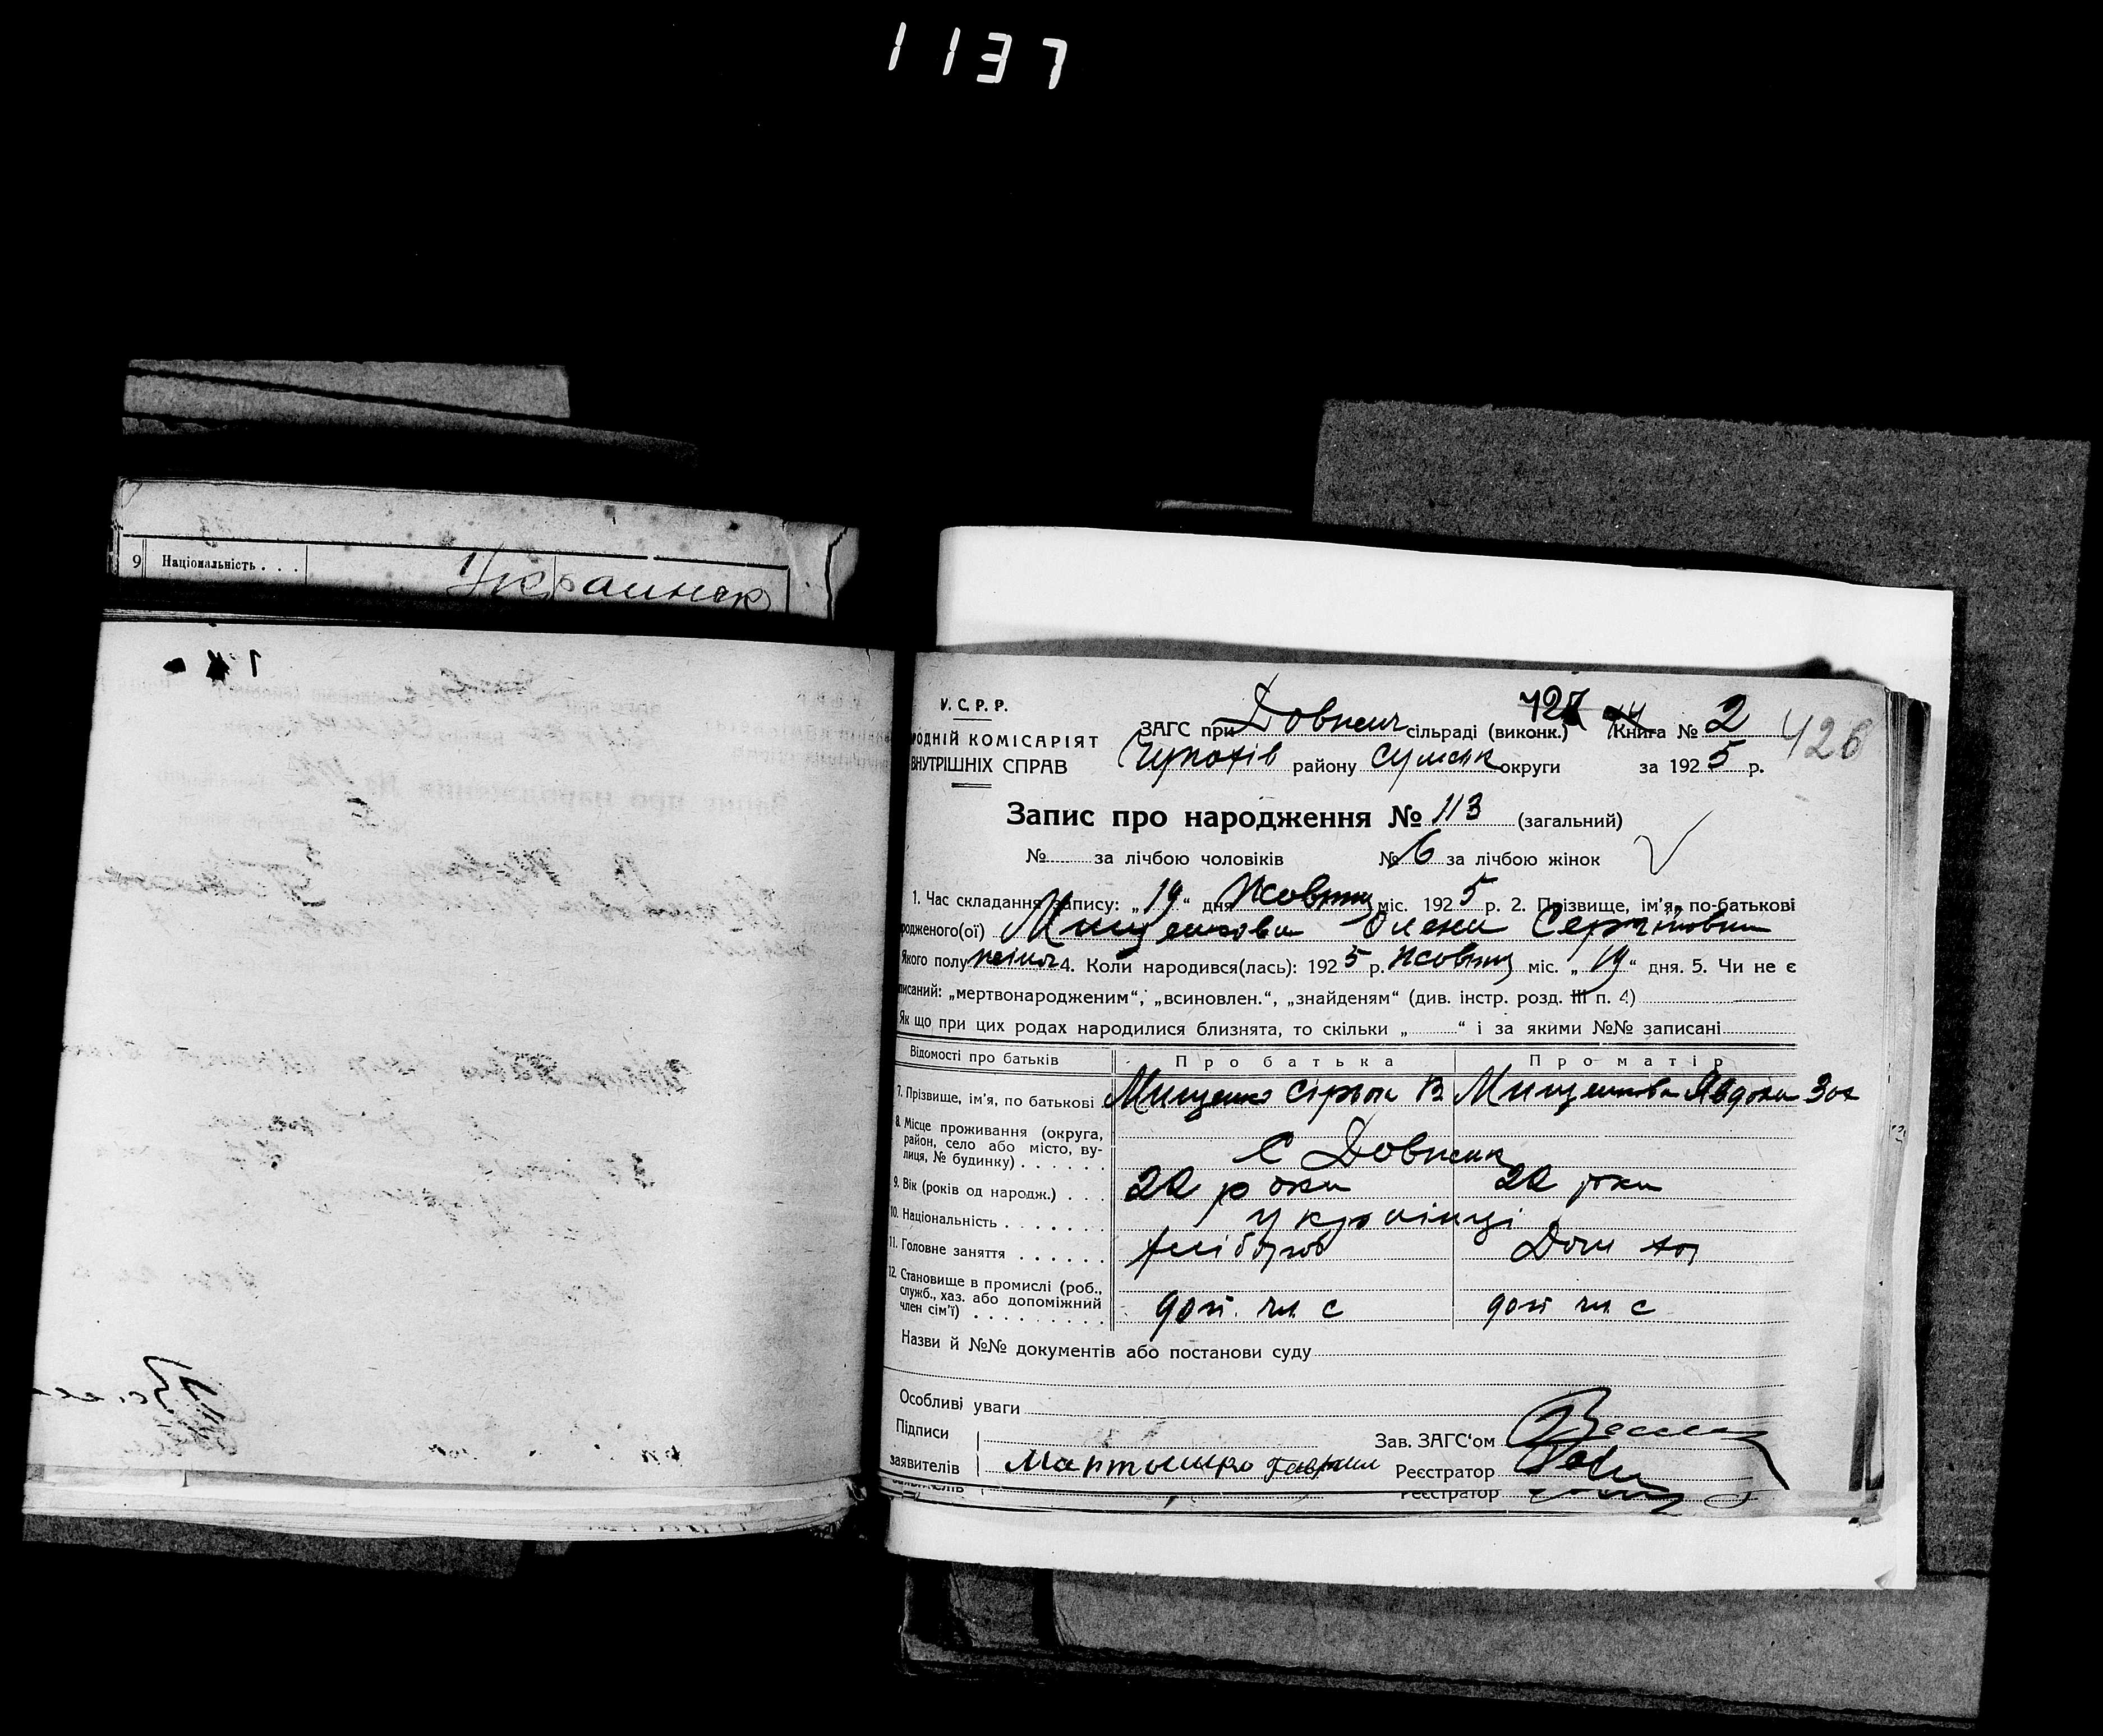 1137
9 Національність . . . Украинск
У. С. Р. Р.
РОДНІЙ КОМІСАРІЯТ
ВНУТРІШНІХ СПРАВ
ЗАГС при Довжик сільраді (виконк.) Книга № 2
району Сумськ округи за 1925 р.
426
Запис про народження № 113 (загальний)
№ за лічбою чоловіків № 6 за лічбою жінок
1. Час складання запису: „19“ дня Жовтня міс. 1925 р. 2. Прізвище, ім'я, по-батькові
родженого(ої) Мищенкова Олена Сергіївна
Якого полу жіноч 4. Коли народився(лась): 1925 р. Жовтня міс. „19“ дня. 5. Чи не є
писаний: „мертвонародженим“, „всиновлен.“, „знайденям“ (див. інстр. розд. III п. 4)
Як що при цих родах народилися близнята, то скільки „ “ і за якими №№ записані
Відомості про батьків Про батька Про матір
7. Прізвище, ім'я, по батькові Мищенко В Мищенкова Явдоха
8. Місце проживання (округа,
район, село або місто, ву-
лиця, № будинку) . . . . . . С Довжик
9. Вік (років од народж.) . . . 22 роки 22 роки
10. Національність . . . . . . . українці
11. Головне заняття . . . . . . хлібороб Дом хоз
12. Становище в промислі (роб.,
служб., хаз. або допоміжний
член сім'ї) . . . . . . . . . доп. чл с доп чл с
Назви й №№ документів або постанови суду
Особливі уваги
Підписи
Зав. ЗАГС'ом
заявителів Гаврил Реєстратор
Реєстратор